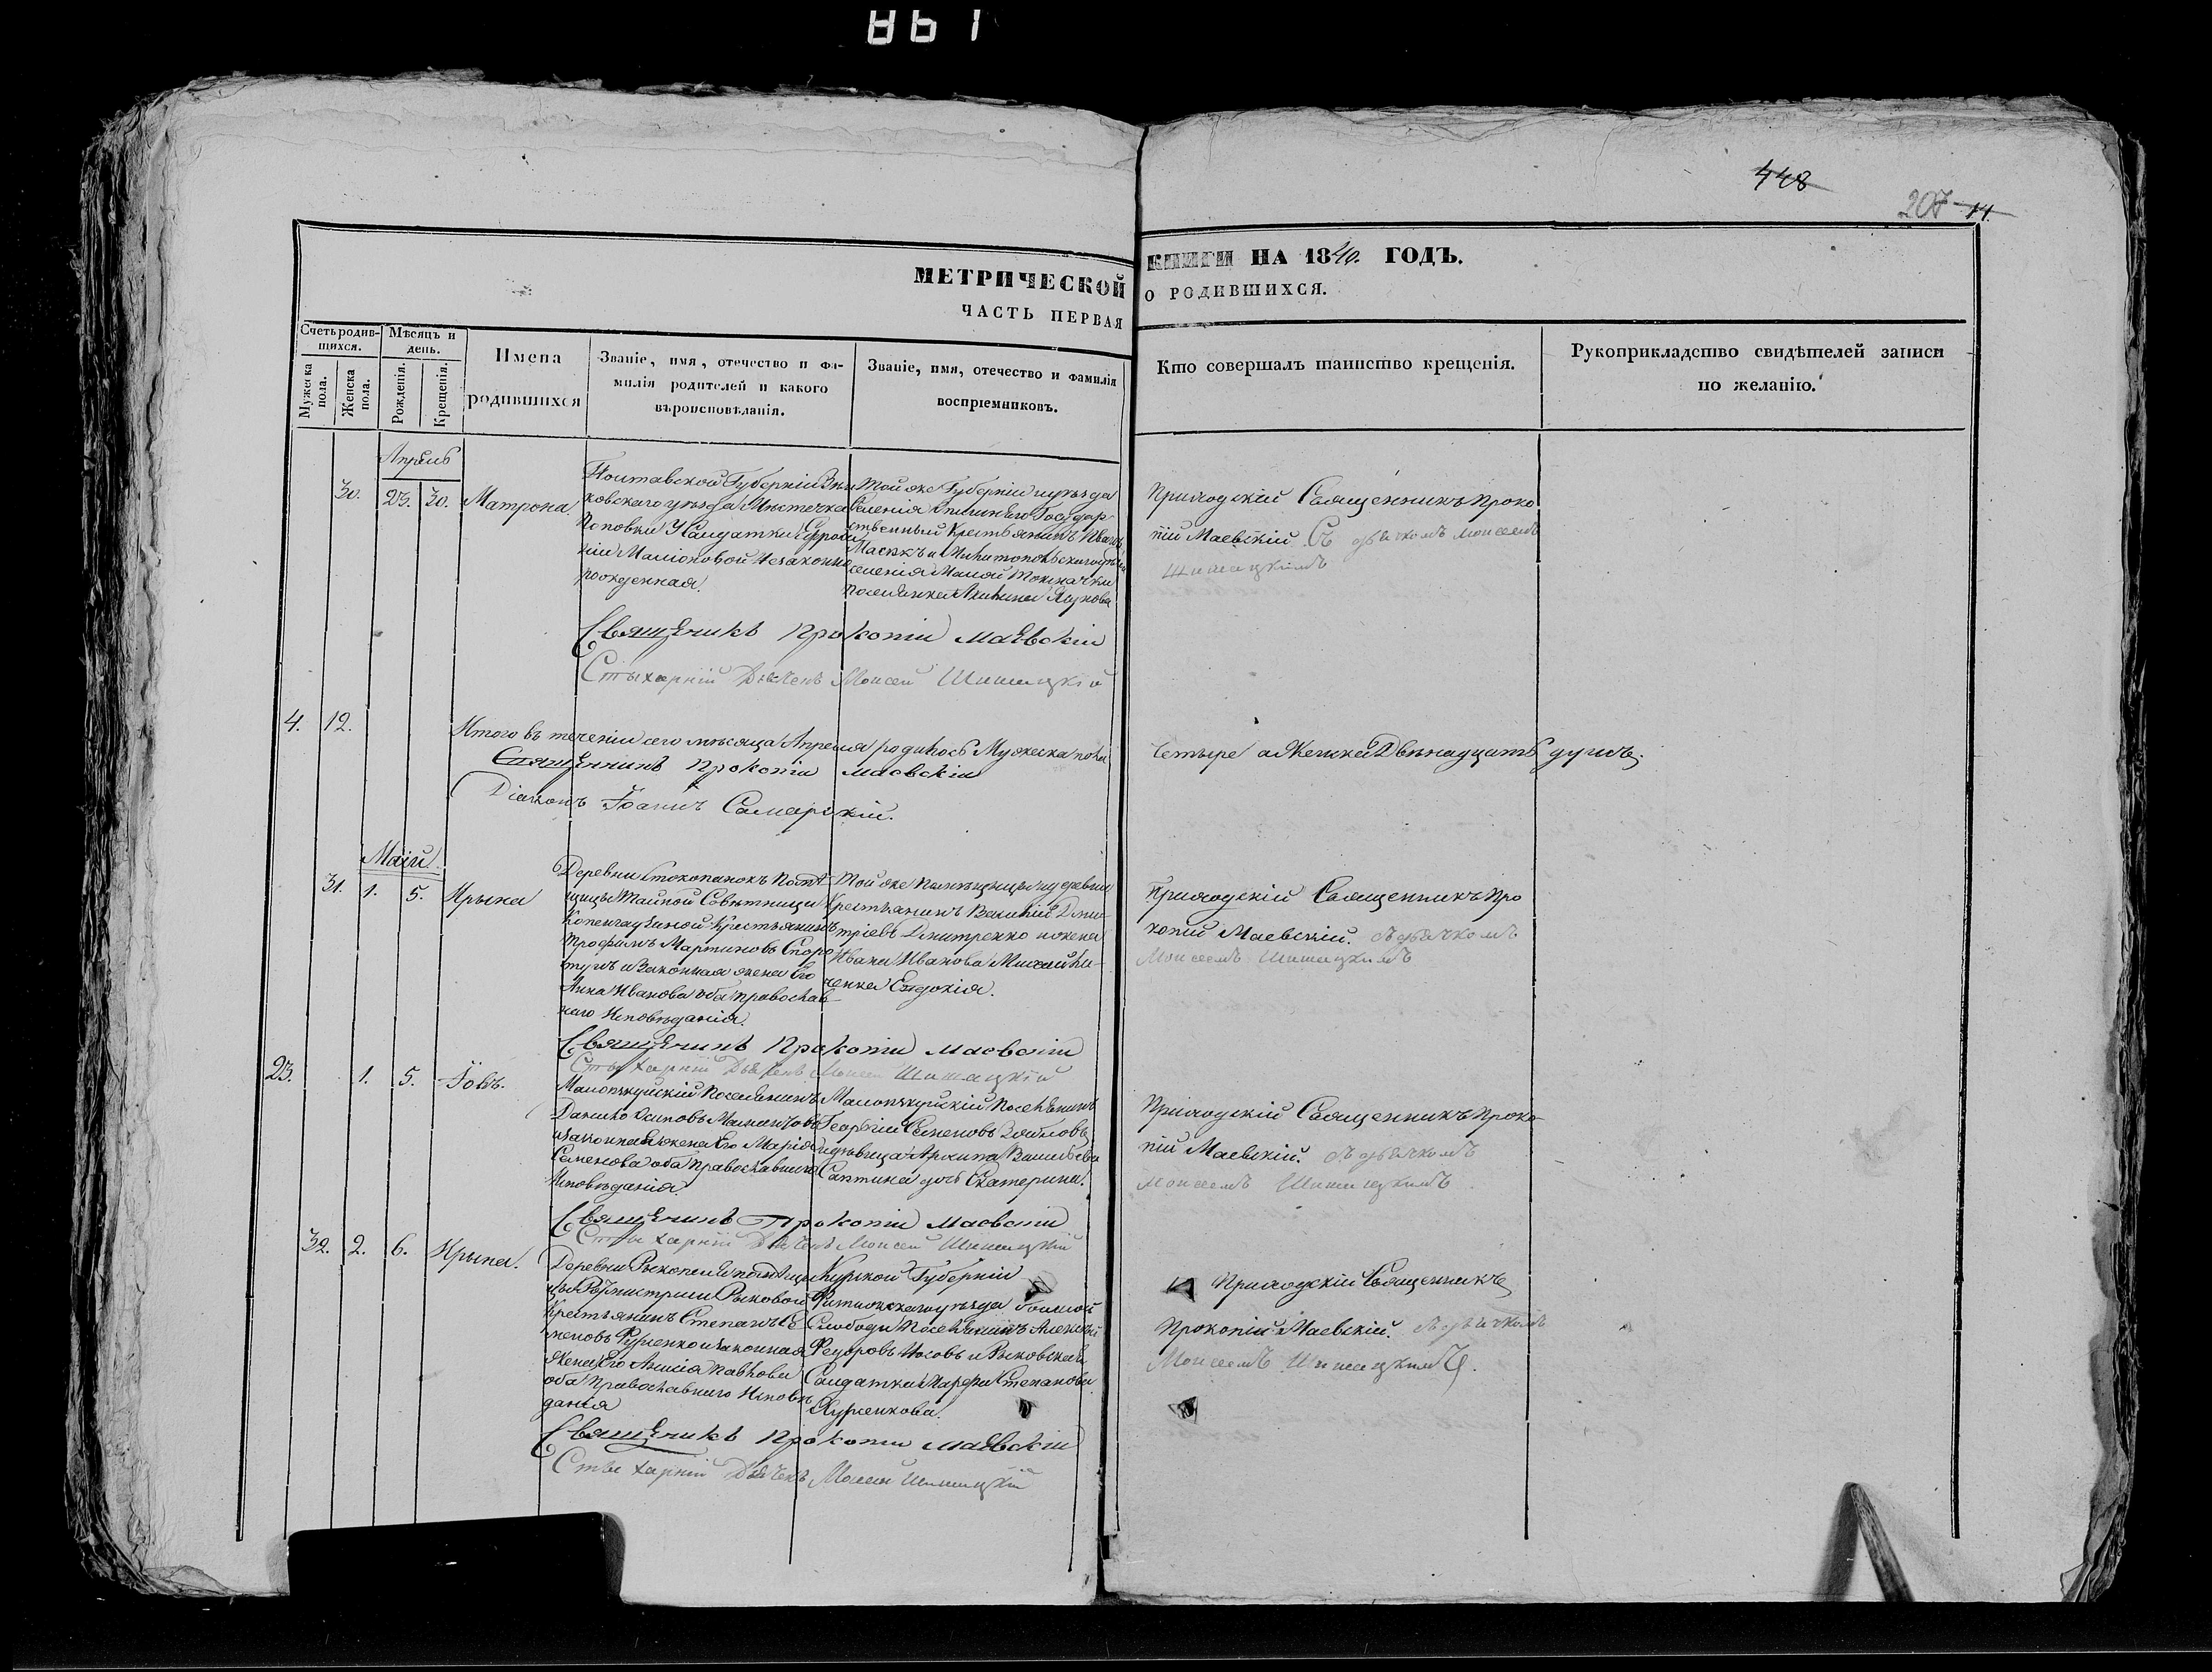 861
448
207 14.
МЕТРИЧЕСКОЙ КНИГИ НА 1840. ГОДЪ.
ЧАСТЬ ПЕРВАЯ О РОДИВШИХСЯ.
Счетъ родив-
щихся.
Мужеска пола.
Женска пола.
Мѣсяцъ и
день.
Рожденія.
Крещенія.
Имена
родившихся
Званіе, имя, отечество и фа-
милія родителей и какого
вѣроисповѣданія.
Званіе, имя, отечество и фамилія
воспріемниковъ.
Кто совершалъ таинство крещенія.
Рукоприкладство свидѣтелей записи
по желанію.
Апрѣль
30. 23. 30. Матрона.
Полтавской Губерніи Зѣнь
ковскаго уѣзда Мѣстечка
Поповки у Салдатки Ефроси
ніи незаконно
рожденная.
Той же Губерніи и уѣзда
селенія Государ-
ственный Крестьянинъ Иванъ
и Мелитопольскаго уѣзда
селенія Малой Токмачки
поселянка Акилина
Приходскій Священникъ Проко
пій Маевскій. Съ дьячкомъ Моисеемъ
Шишацкимъ
Священикъ Прокопій Маевскій
Стыхарній Дьячекъ Моисей Шишацкій
4. 12.
Итого въ теченіи сего мѣсяца Апреля родилось Мужеска пола
четыре а Женска Двѣнадцать душъ.
Священникъ Прокопій Маевскій
Діаконъ Іоаннъ Самарскій.
Маій
31. 1. 5. Ирына
Деревни Стокопанокъ Помѣ
щицы Тайной Совѣтницы
Крестьянинъ
Трофимъ Мартиновъ
и Законная жена Его
Анна Иванова оба православ-
наго Исповѣданія.
Той же помѣщицы и деревни
Крестьянинъ Василій Дми-
тріевъ Дмитренко и жена
Ивана Иванова Михайли-
ченка Евдокія.
Приходскій Священникъ Про
копій Маевскій. Съ дьячкомъ
Моисеемъ Шишацкимъ
Священикъ Прокопій Маевскій
Стыхарній Дьячекъ Моисей Шишацкій
23. 1. 5. Іовъ.
Поселянинъ
Данило Осиповъ
и законная жена Его Марія
Семенова оба православнаго
Исповѣданія.
Поселянинъ
Георгій Семеновъ
и дѣвица Архипа Васильева
дочь Екатерина.
Приходскій Священникъ Проко-
пій Маевскій. Съ дьячкомъ
Моисеемъ Шишацкимъ.
Священикъ Прокопій Маевскій
Стыхарній Дьячекъ Моисей Шишацкій
32. 2. 6. Ирына.
Деревни помѣщи
цы Рыковой
Крестьянинъ Степанъ Се
меновъ и законная
жена Его Павлова
оба Православнаго Исповѣ
данія
Курской Губерніи
уѣзда
Слободы Поселянинъ Алексѣй
Федоровъ Носовъ и
Салдатка Марфа Степанова
Приходскій Священникъ
Прокопій Маевскій. Съ дьячкомъ
Моисеемъ Шишацкимъ.
Священикъ Прокопій Маевскій
Стыхарній Дьячекъ Моисей Шишацкій